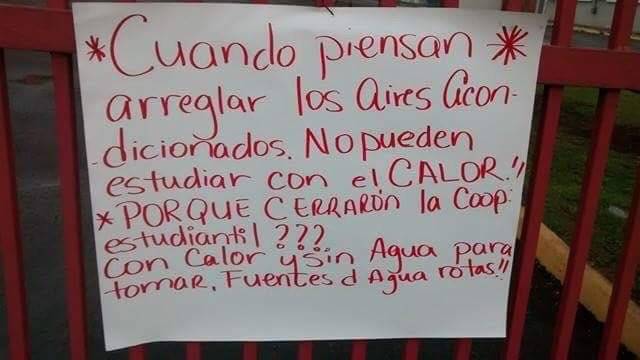 *Cuando piensan *
arreglar los Aires Acon-
dicionados. No pueden
estudiar con el CALOR.!!
* PORQUE CERRARON la Coop.
estudiantil ???
con Calor y sin Agua para
tomar. Fuentes d Agua rotas!!